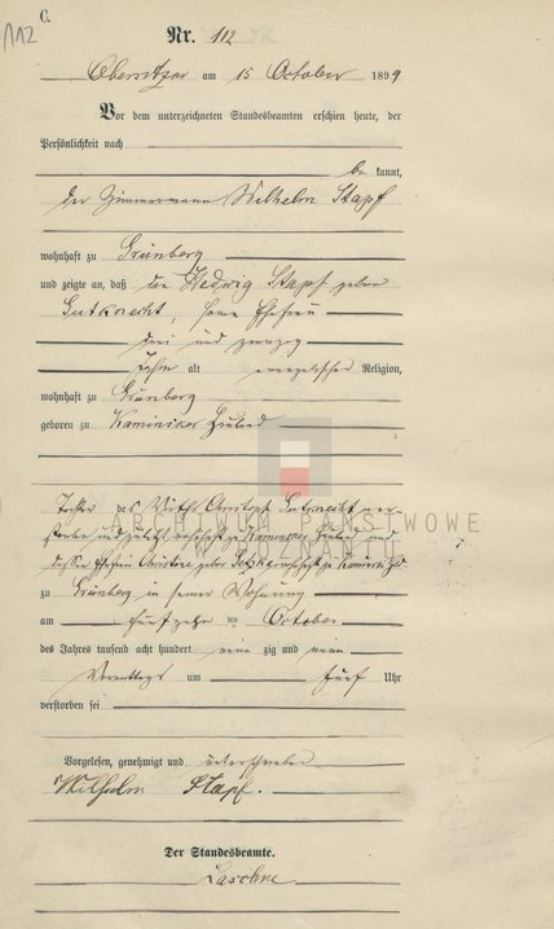 C.
112
Nr. 112
Obersitzko am 15 October 1899
Vor dem unterzeichneten Standesbeamten erschien heute, der
Persönlichkeit nach
be kannt,
der Zimmermann Wilhelm Stapf
wohnhaft zu Grünberg
und zeigte an, daß die Hedwig Stapf geborn
Gutknecht, seine Ehefrau
drei und zwanzig
Jahre alt evangelischer Religion,
wohnhaft zu Grünberg
geboren zu Kaminsker Hauland
Tochter des Wirths Christoph Gutknecht ver-
storben und zuletzt wohnhaft zu Hauland und
dessen Ehefrau Christine wohnhaft zu
zu Grünberg in seiner Wohnung
am fünfzehn ten October
des Jahres tausend acht hundert neun zig und neun
Vormittags um fünf Uhr
verstorben sei
Vorgelesen, genehmigt und unterschrieben
Wilhelm Stapf.
Der Standesbeamte.
Laschke
ARCHIWUM PAŃSTWOWE
W POZNANIU